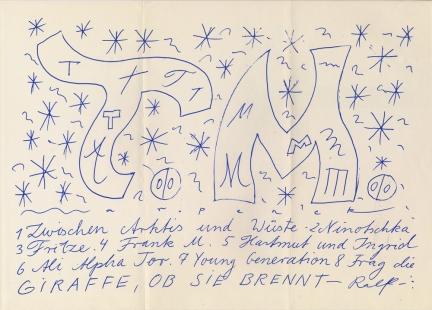 T T T T T T T
M M M M M m M
% %
a. r. p e n c k.
1 Zwischen Arktis und Wüste. 2 Ninotschka
3 Fritze. 4 Frank M. 5 Hartmut und Ingrid
6 Ali Alpha Tor. 7 Young Generation 8 Frag die
GIRAFFE, OB SIE BRENNT— Ralf